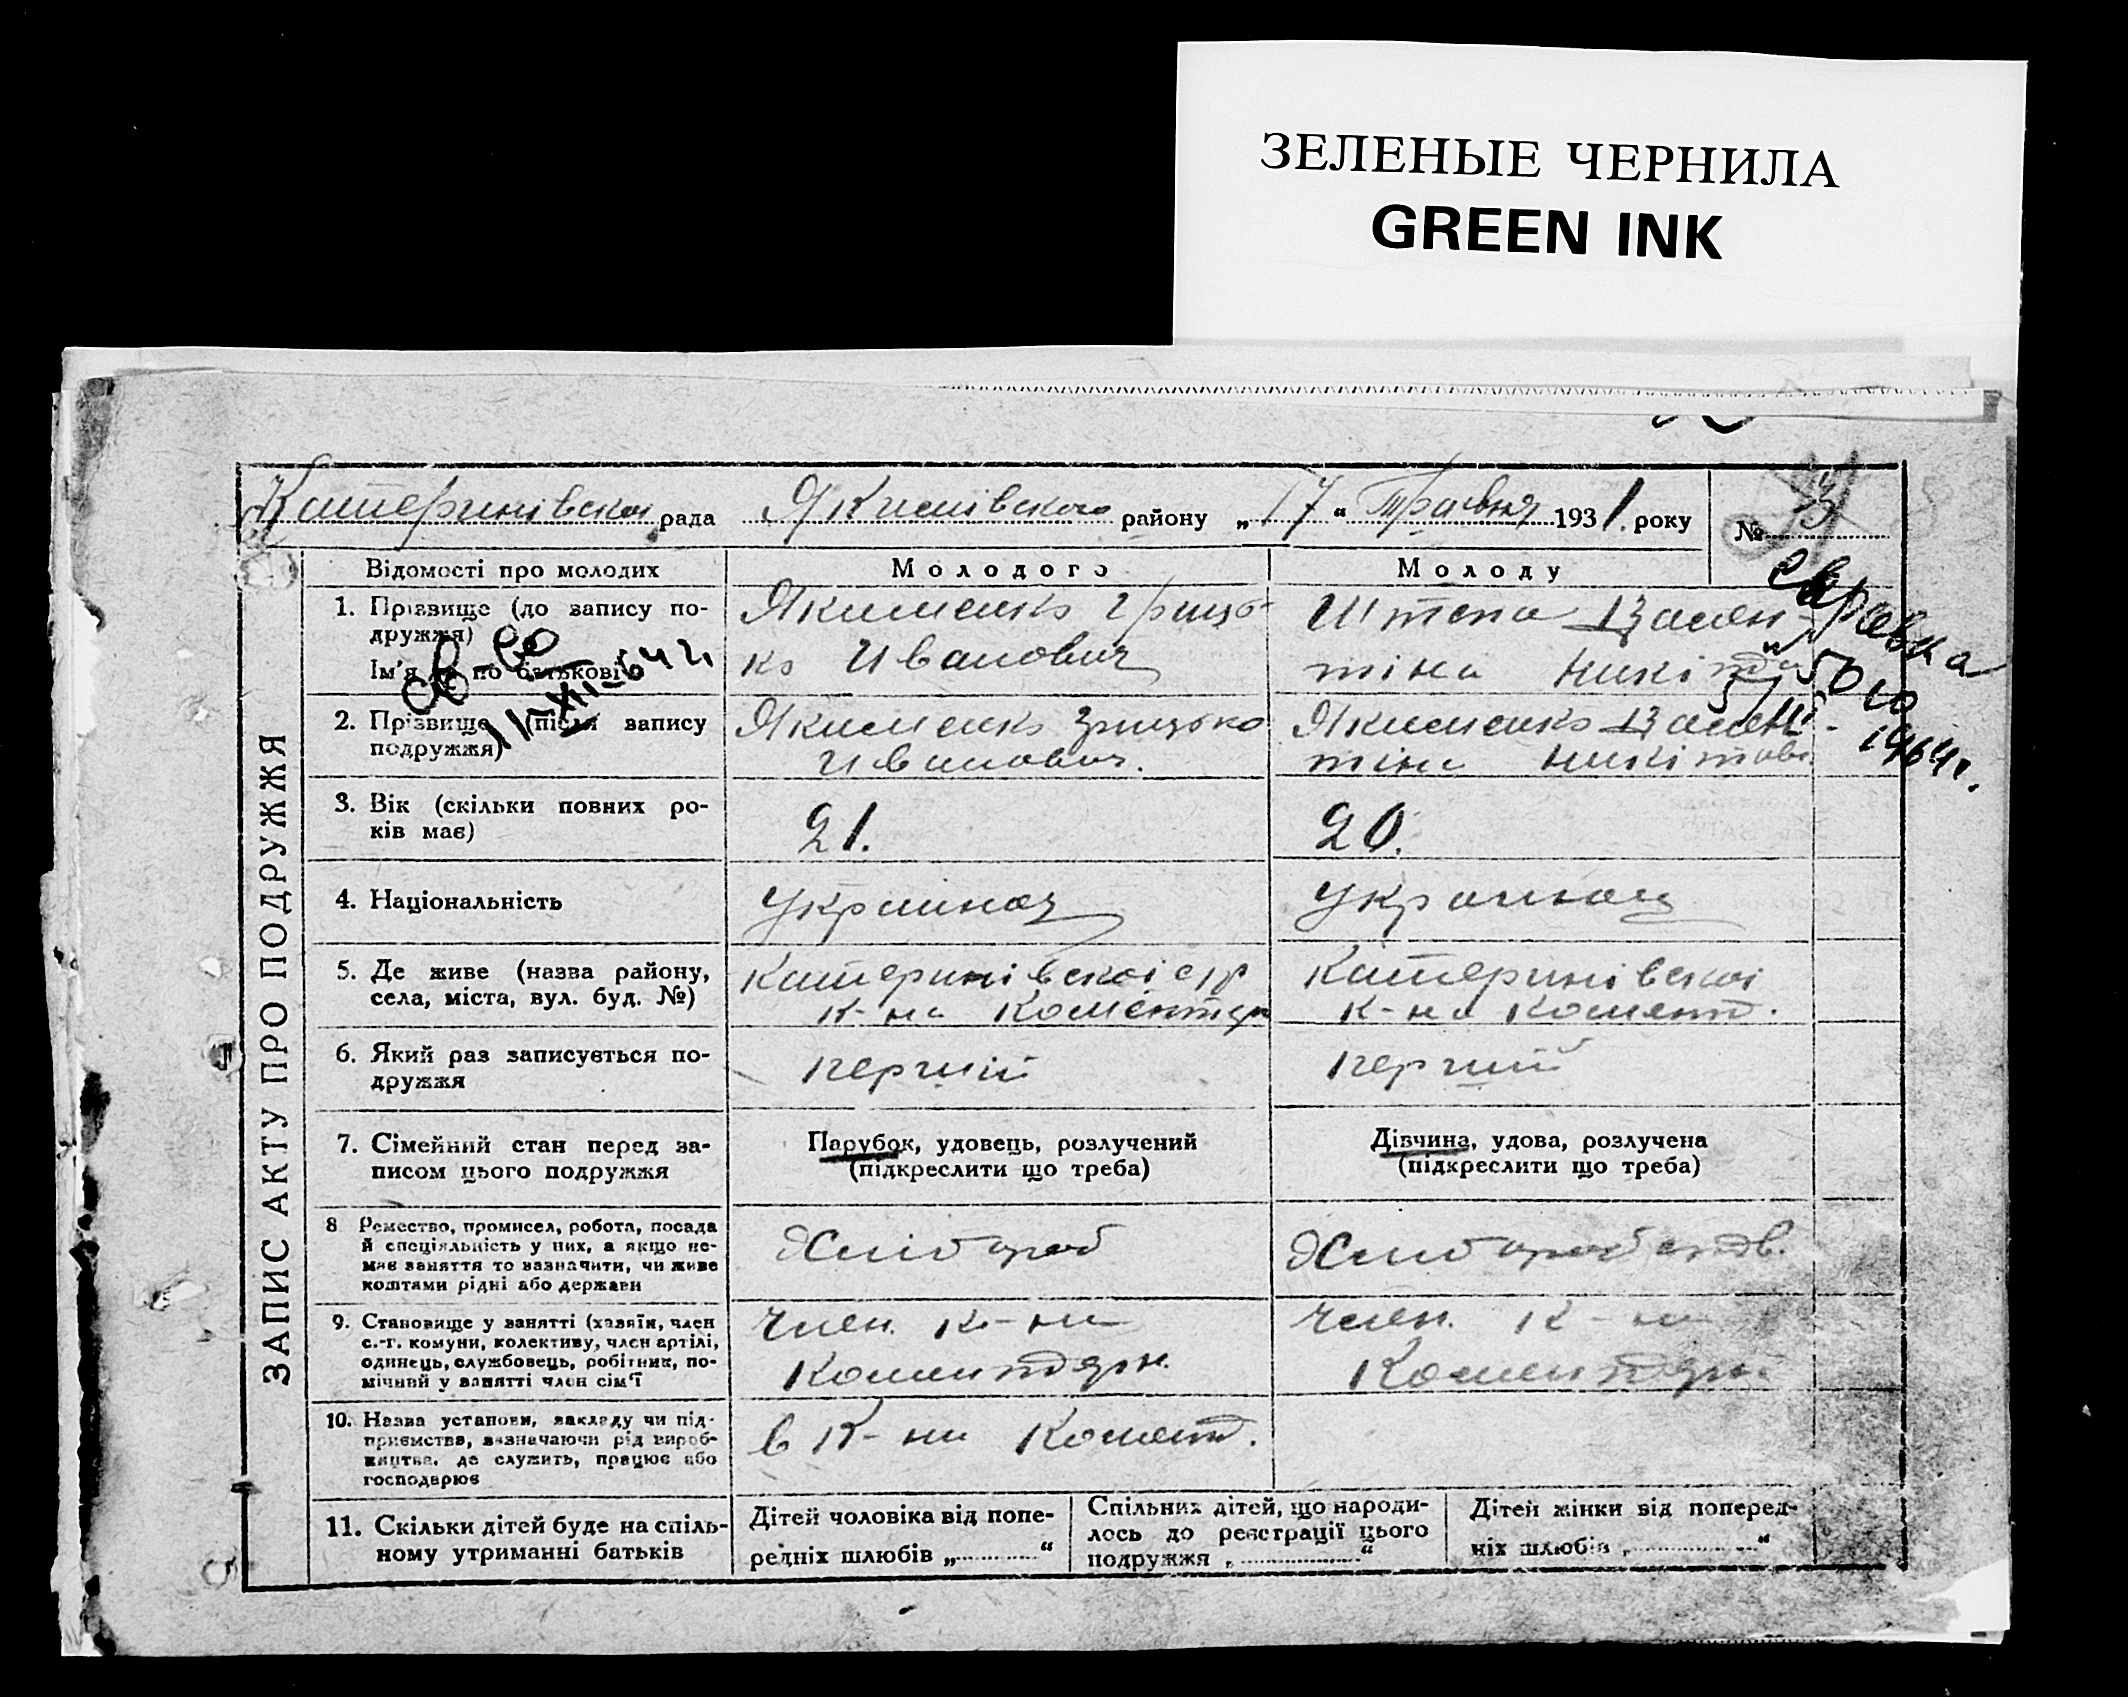 ЗЕЛЕНЫЕ ЧЕРНИЛА
GREEN INK
Катеринівскои рада Якимівского району „17“ Травня 1931. року
№ 3
ЗАПИС АКТУ ПРО ПОДРУЖЖЯ
Відомості про молодих
Молодого
Молоду
1. Прізвище (до запису по-
дружжя)
Ім'я по батькові
Якименко Грицъ-
ко Иванович
Штепа Вален-
тіна Никітов
Справка
1964г.
2. Прізвище (після запису
подружжя)
Якименко Грицько
Иванович.
Якименко Вален-
тіна Никітов
3. Вік (скільки повних ро-
ків має)
21.
20.
4. Національність
5. Де живе (назва району,
села, міста, вул. буд. №)
Катеринівскоі с/р
к-на Коментерн
Катеринівскоі
к-на Комент.
6. Який раз записується по-
дружжя
перший
перший
7. Сімейний стан перед за-
писом цього подружжя
Парубок, удовець, розлучений
(підкреслити що треба)
Дівчина, удова, розлучена
(підкреслити що треба)
8 Ремество, промисел, робота, посада
й спеціяльність у них, а якщо не-
має заняття то зазначити, чи живе
коштами рідні або держави
Хлібороб
Хлібороб
9. Становище у занятті (хазяїн, член
с.-г. комуни, колективу, член артілі,
одинець, службовець, робітник, по-
мічний у занятті член сім'ї
Член. К-ни
Коминтерн.
Член. К-ни
Коминтерн.
10. Назва установи, закладу чи під-
приємства, зазначаючи рід вироб-
ництва, де служить, працює або
господарює
в К-ни Комент.
11. Скільки дітей буде на спіль-
ному утриманні батьків
Дітей чоловіка від попе-
редніх шлюбів „ “
Спільних дітей, що народи-
лось до реєстрації цього
подружжя „ “
Дітей жінки від поперед-
ніх шлюбів „ “